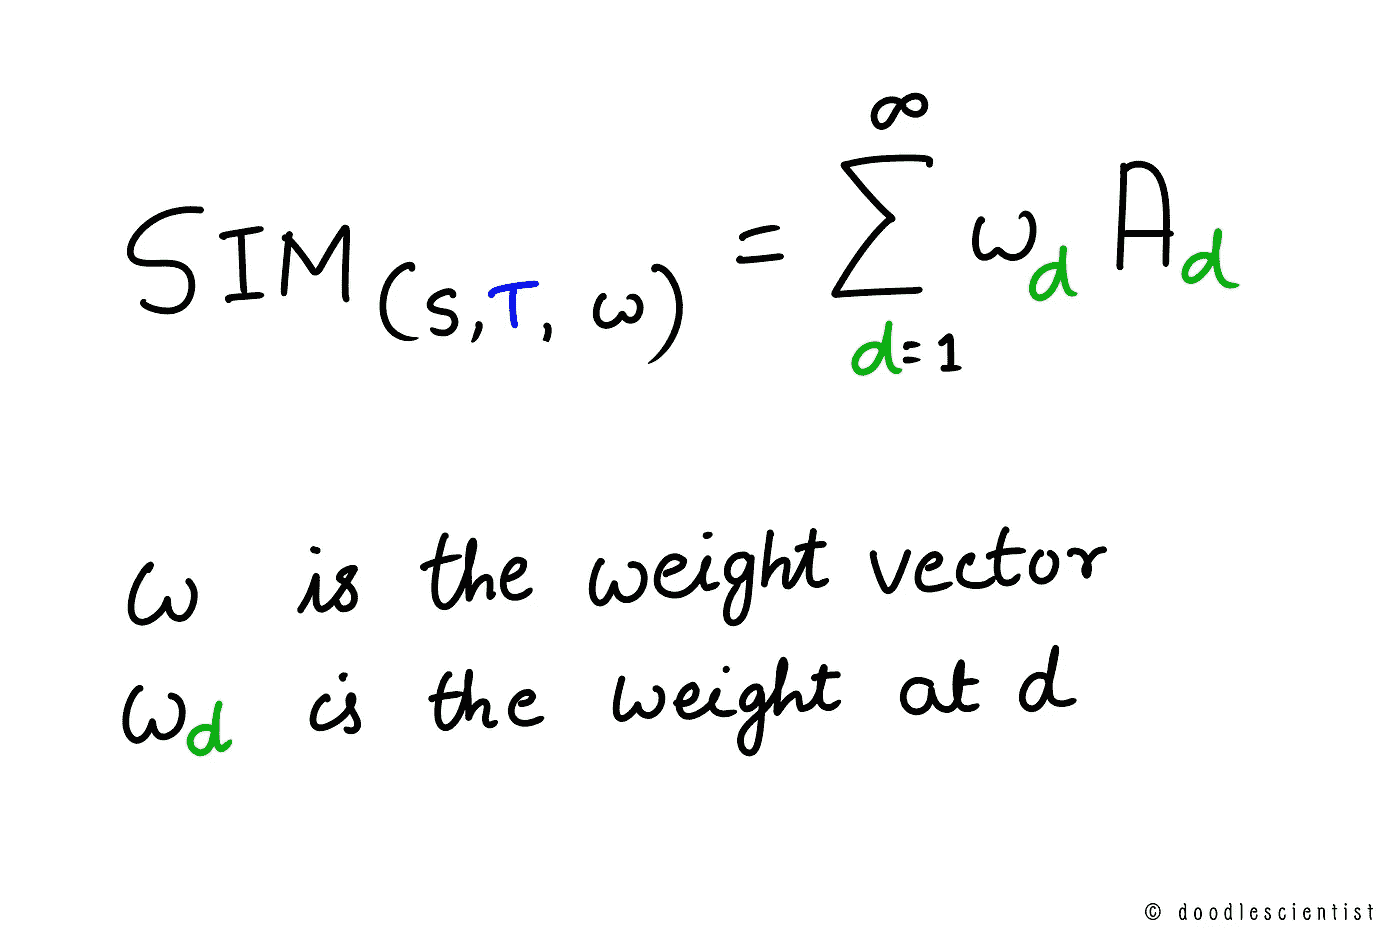 ∞
SIM(S,T, ω) = Σ ωd Ad
d=1
ω is the weight vector
ωd is the weight at d
© doodlescientist